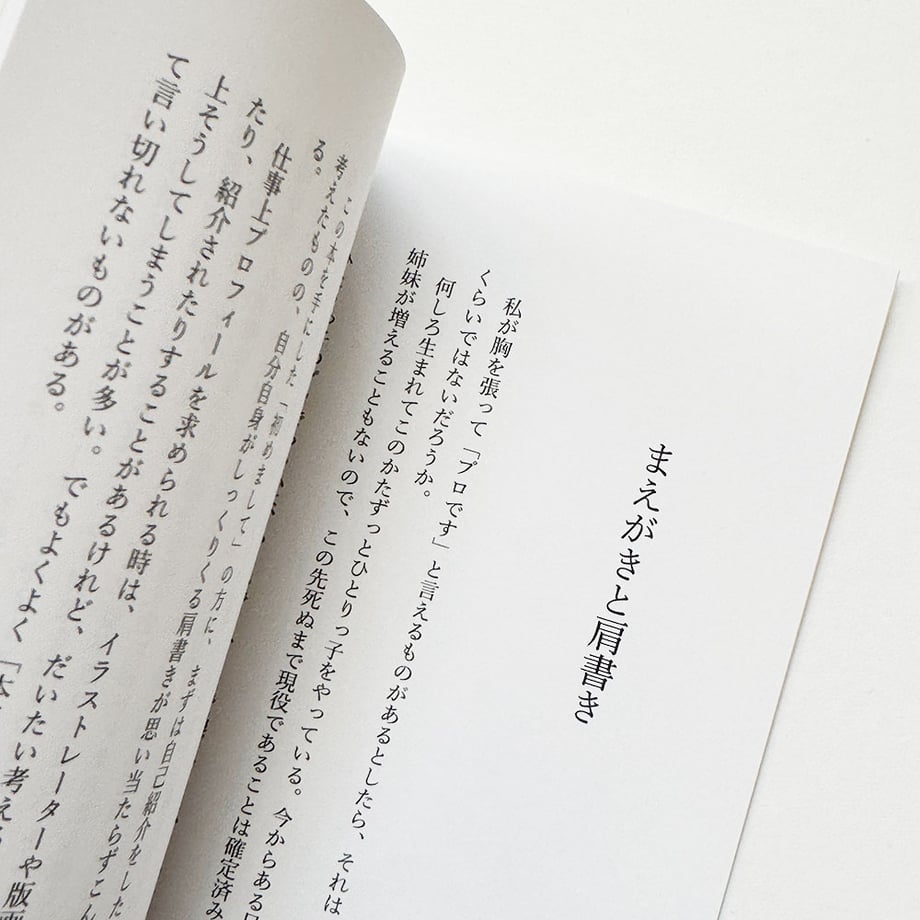 まえがきと肩書き
私が胸を張って「プロです」と言えるものがあるとしたら、それは
くらいではないだろうか。
何しろ生まれてこのかたずっとひとりっ子をやっている。今からある
姉妹が増えることもないので、この先死ぬまで現役であることは確定済み
この本を手にした「初めまして」の方に、まずは自己紹介をした
考えたものの、自分自身がしっくりくる肩書きが思い当たらずこん
る。
仕事上プロフィールを求められる時は、イラストレーターや版画
たり、紹介されたりすることがあるけれど、だいたい考え
上そうしてしまうことが多い。でもよくよく「本
て言い切れないものがある。